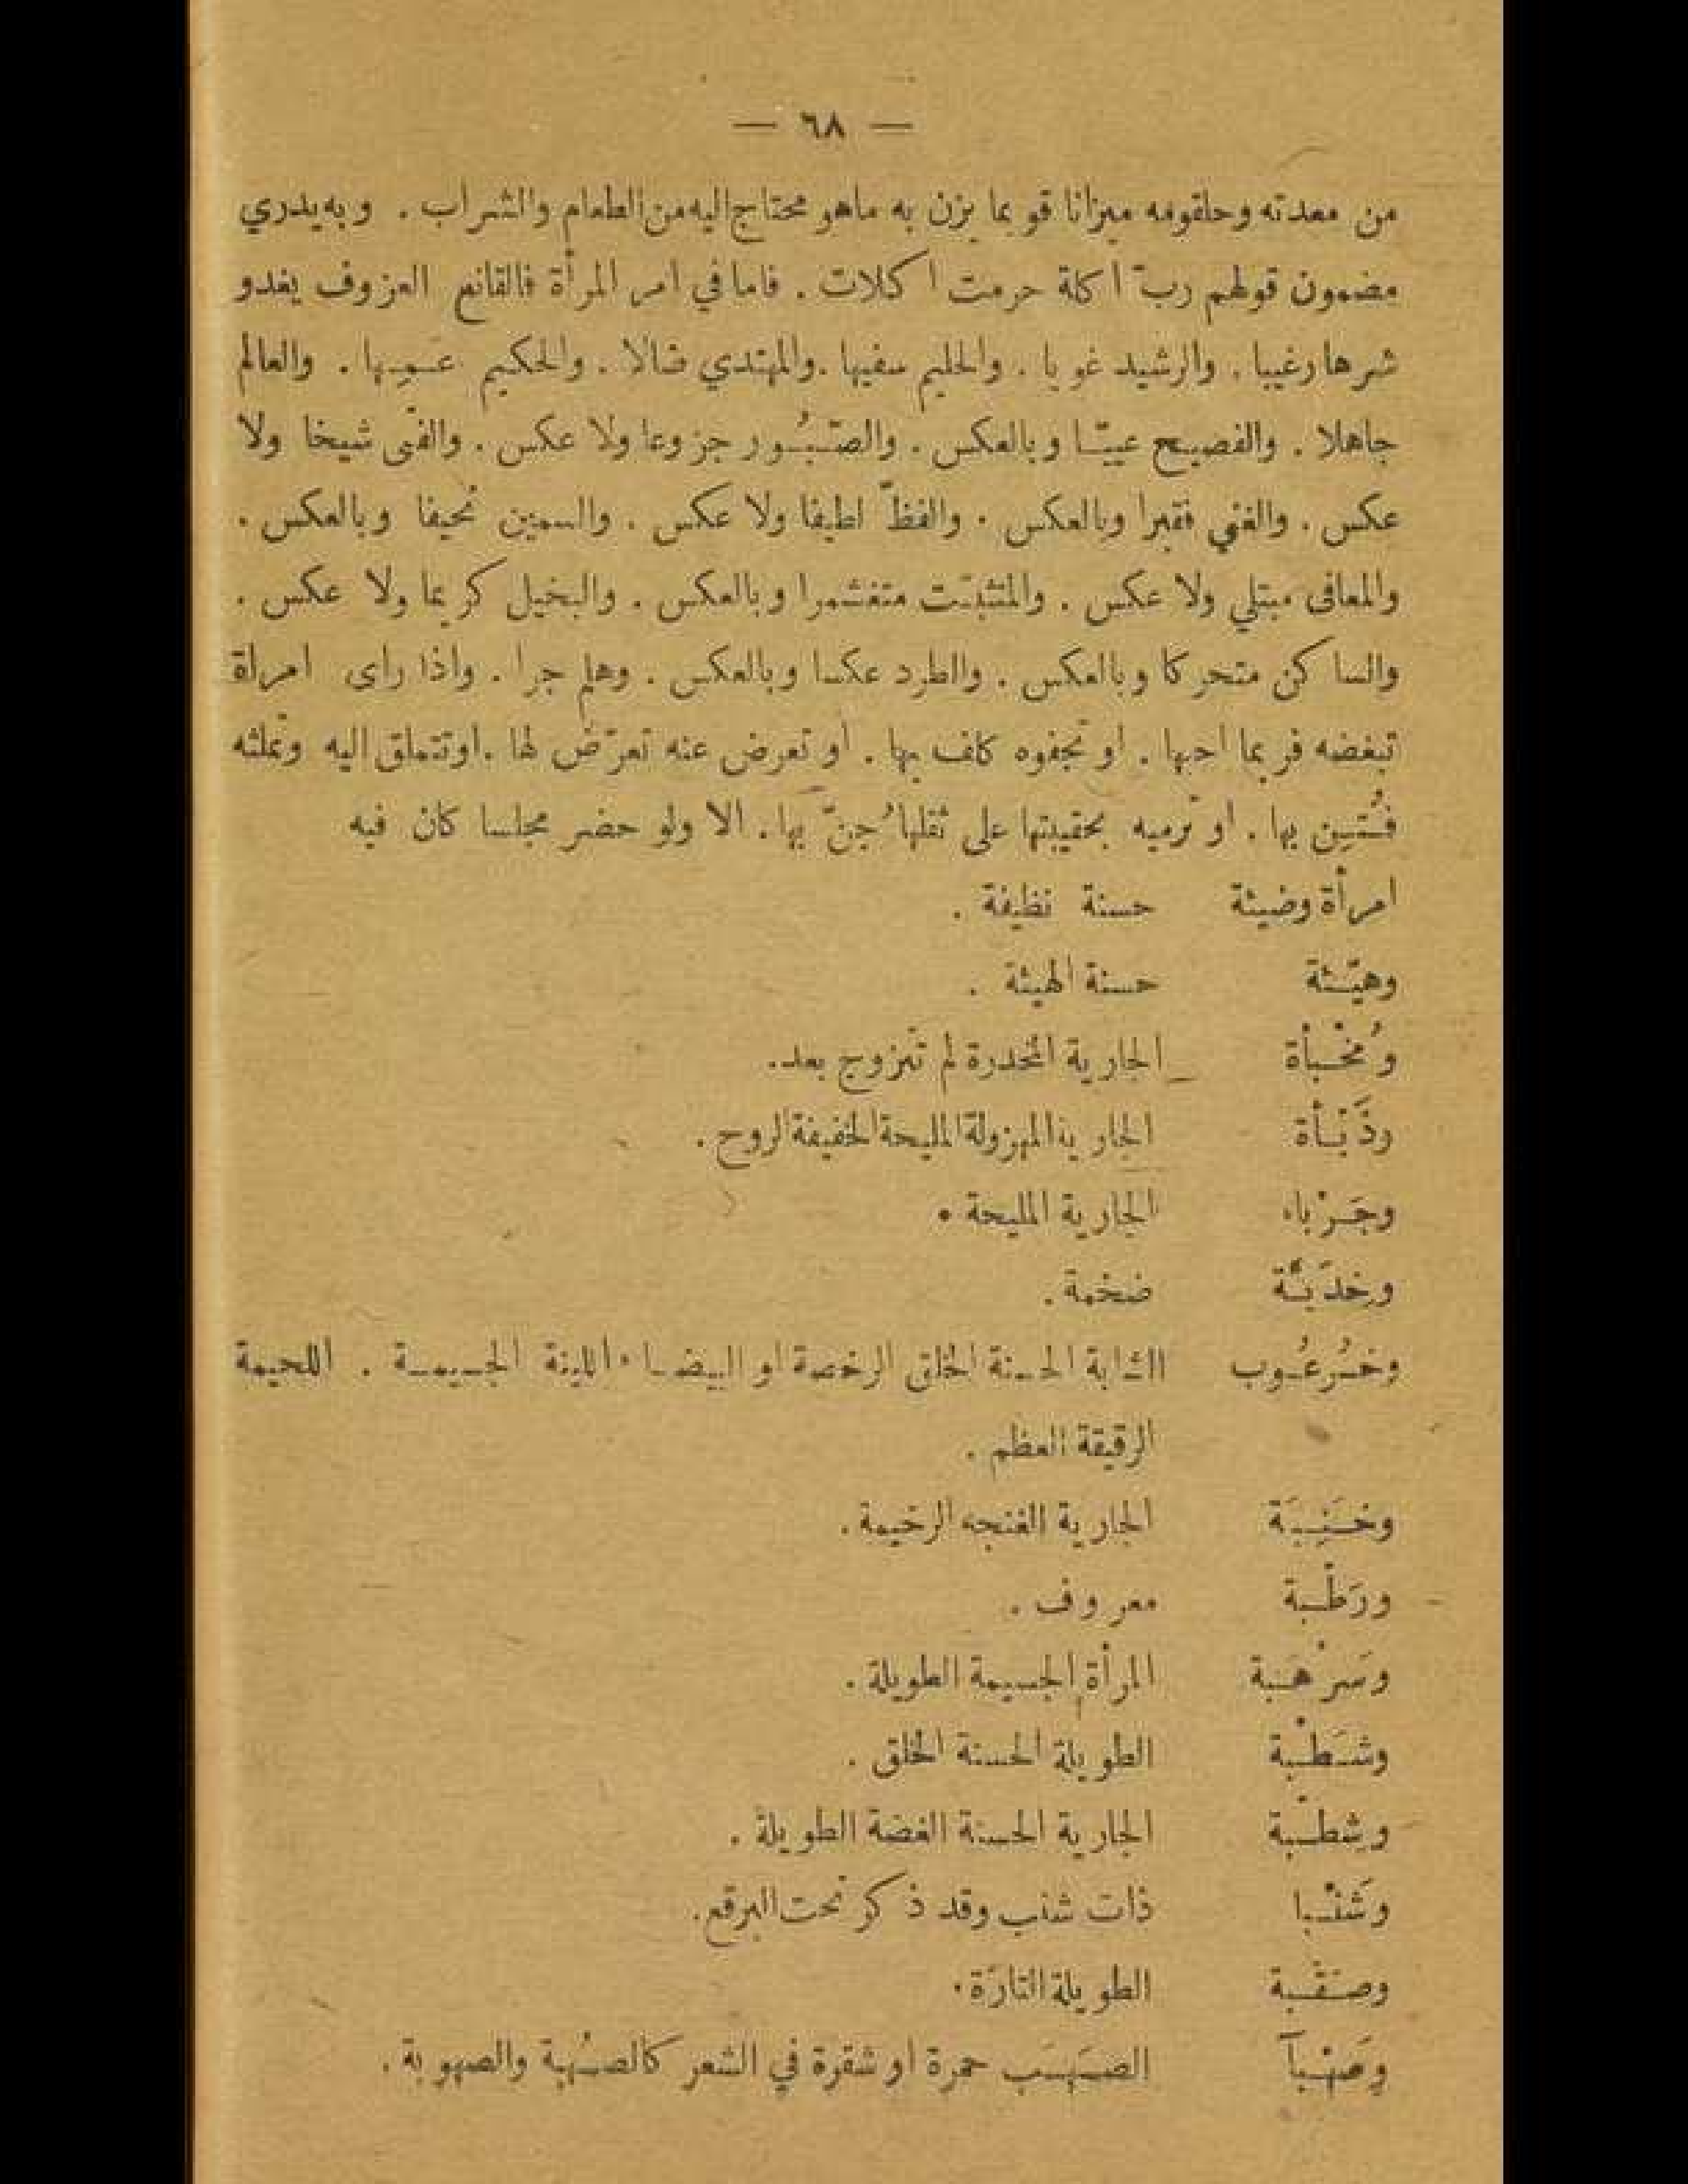 — ٦٨ —
من معدته وحلقومه ميزانا قويما يزن به ماهو محتاج اليه من الطعام والشراب . وبه يدري
مضمون قولهم ربّ اكلة حرمت اكلات . فاما في امر المرأة فالقانع العزوف يغدو
شرها رغيبا . والرشيد غويا . والحليم سفيها . والمهتدي ضالا . والحكيم عَمِها . والعالم
جاهلا . والفصيح عييّا وبالعكس . والصَّبُور جزوعا ولا عكس . والفتى شيخا ولا
عكس . والغني فقيرا وبالعكس . والفظّ لطيفا ولا عكس . والسمين نحيفا وبالعكس .
والمعافى مبتلي ولا عكس . والمتثبّت متغشمرا وبالعكس . والبخيل كريما ولا عكس .
والساكن متحركا وبالعكس . والطرد عكسا وبالعكس . وهلم جرا . واذا راى امراة
تبغضه فربما احبها . او تجفوه كلف بها . او تعرض عنه تعرّض لها . او تتملق اليه وتملثه
فُتِين بها . او ترميه بحقيبتها على ثقلها ُجنّ بها . الا ولو حضر مجلسا كان فيه
امرأة وضيئة حسنة نظيفة .
وهيّئة حسنة الهيئة .
وُمخْبأة الجارية المخدرة لم تتزوج بعد .
الجارية المهزولة المليحة الخفيفة الروح .
وجَرْباء الجارية المليحة .
ضخمة .
وخُرعُوب الشابة الحسنة الخلق الرخصة او البيضاء اللينة الجسيمة . اللحيمة
الرقيقة العظم .
وخَنِبَة الجارية الغنجه الرخيمة .
ورَطْبة معروف .
وسَرْهَبة المرأة الجسيمة الطويلة .
وشَطْبة الطويلة الحسنة الخلق .
وشِطْبة الجارية الحسنة الغضة الطويلة .
وشَنْبا ذات شنب وقد ذكر تحت البرقع .
وصَقْبة الطويلة التارّة .
وصَهْبآ الصَهَب حمرة او شقرة في الشعر كالصُهبة والصهوبة .